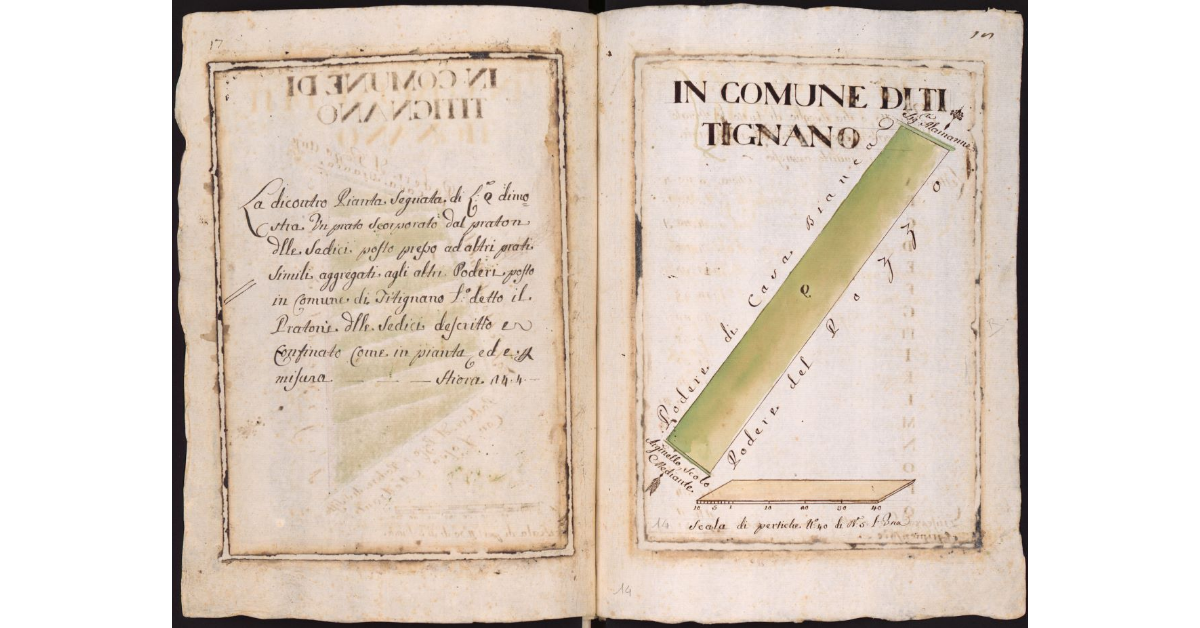 17
La dicontro Pianta Segnata di L.ª Q dimo
stra Un prato Scorporato dal praton
dlle Sedici posto presso ad altri prati
Simili aggregati agli altri Poderi posto
in Comune di Titignano L.º detto il
Pratone dlle Sedici descritto e
Confinato Come in pianta ed e
misura Stiora 14.4
IN COMUNE DI TI
TIGNANO
Mananni
Podere di Casa Bianca
Q
Podere del Pozzo
Arginello, scolo
Mediante
10 5 1 10 20 30 40
Scala di pertiche Nº 40 di
14
14